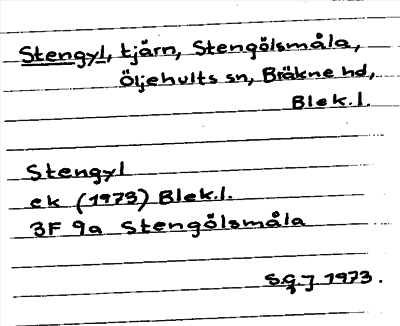 Stengyl, tjärn, Stengölsmåla,
Öljehults sn, Bräkne hd,
Blek.l.
Stengyl
ek (1973) Blek.l.
3F 9a Stengölsmåla
S.G.J 1973.